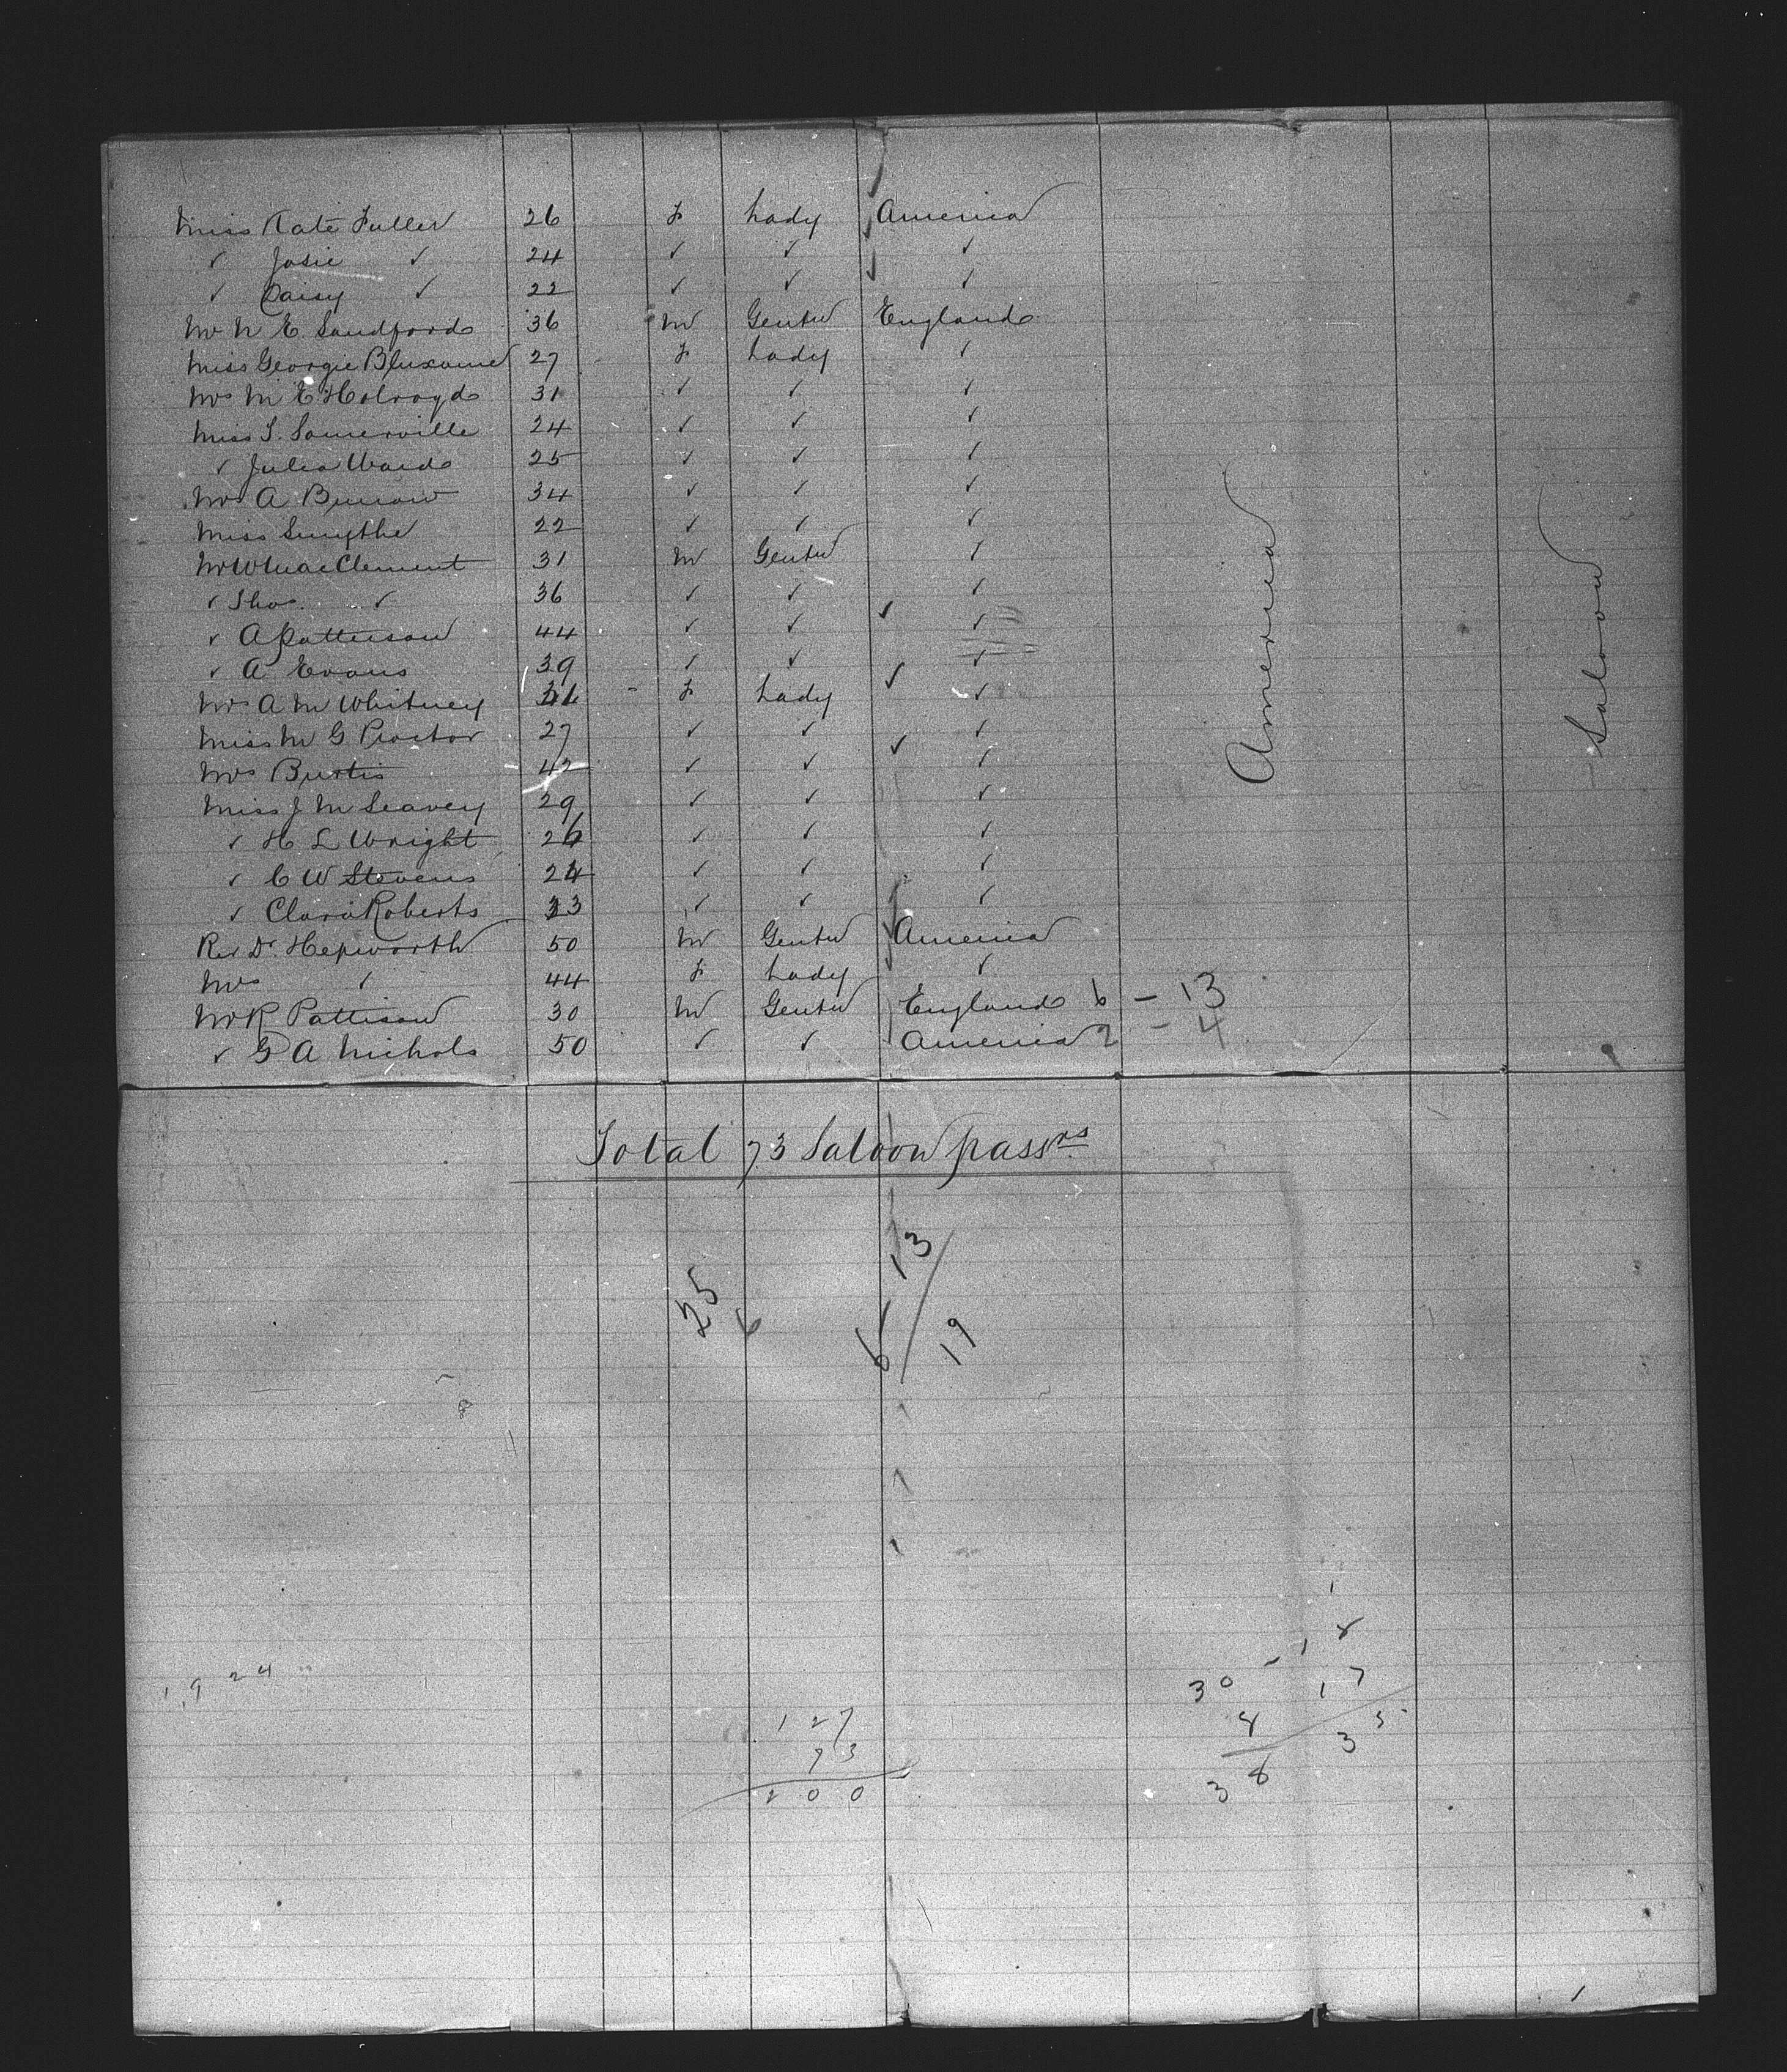 Miss Kate Fuller 26 F Lady America
✓ Josie ✓ 24 ✓ ✓ ✓
✓ Daisy ✓ 22 ✓ ✓ ✓
Mr N E. Sandford 36 M Gentn England
Miss Georgie Bluxome 27 F Lady ✓
Mrs M E Holroyd 31 ✓ ✓ ✓
Miss S. Somerville 24 ✓ ✓ ✓
✓ Julia Ward 25 ✓ ✓ ✓
Mrs A 34 ✓ ✓ ✓
Miss Smythe 22 ✓ ✓ ✓
Mr Clement 31 M Gentn ✓
✓ Thos. ✓ 36 ✓ ✓ ✓
✓ A Patterson 44 ✓ ✓ ✓
✓ A Evans 39 ✓ ✓ ✓
Mrs A M Whitney F Lady ✓
Miss M G Proctor 27 ✓ ✓ ✓
Mrs Burtis 42 ✓ ✓ ✓
Miss J M Seavey 29 ✓ ✓ ✓
✓ H L Wright 26 ✓ ✓ ✓
✓ C W Stevens 24 ✓ ✓ ✓
✓ Clara Roberts 33 ✓ ✓ ✓
Rev Dr. Hepworth 50 M Gentn America
Mrs ✓ 44 F Lady ✓
Mr R Pattison 30 M Gentn England 6 - 13
✓ G A Nichols 50 ✓ ✓ America 2 - 4
America
Saloon
Total 73 Saloon passrs
25
6
13
6
19
19 24
127
73
200
30
8
38
18
17
35